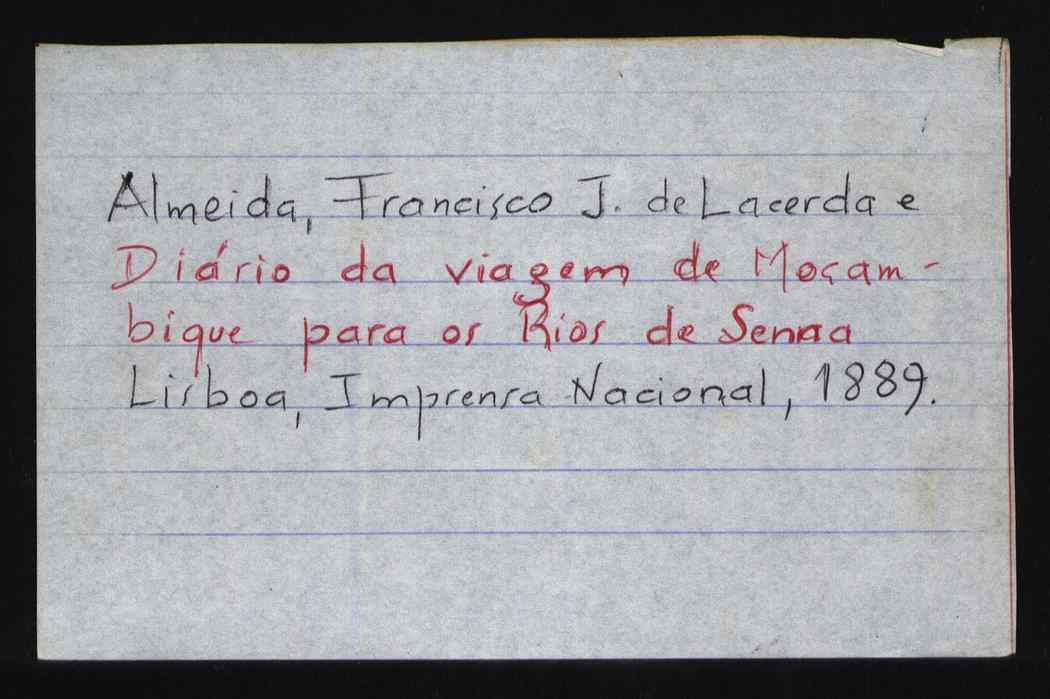 Almeida, Francisco J. de Lacerda e
Diário da viagem de Moçam-
bique para os Rios de Senna
Lisboa, Imprensa Nacional, 1889.